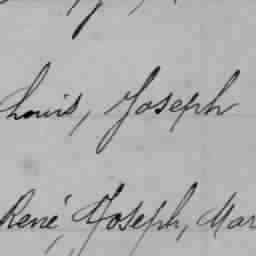 Louis, Joseph
René, Joseph, Mar